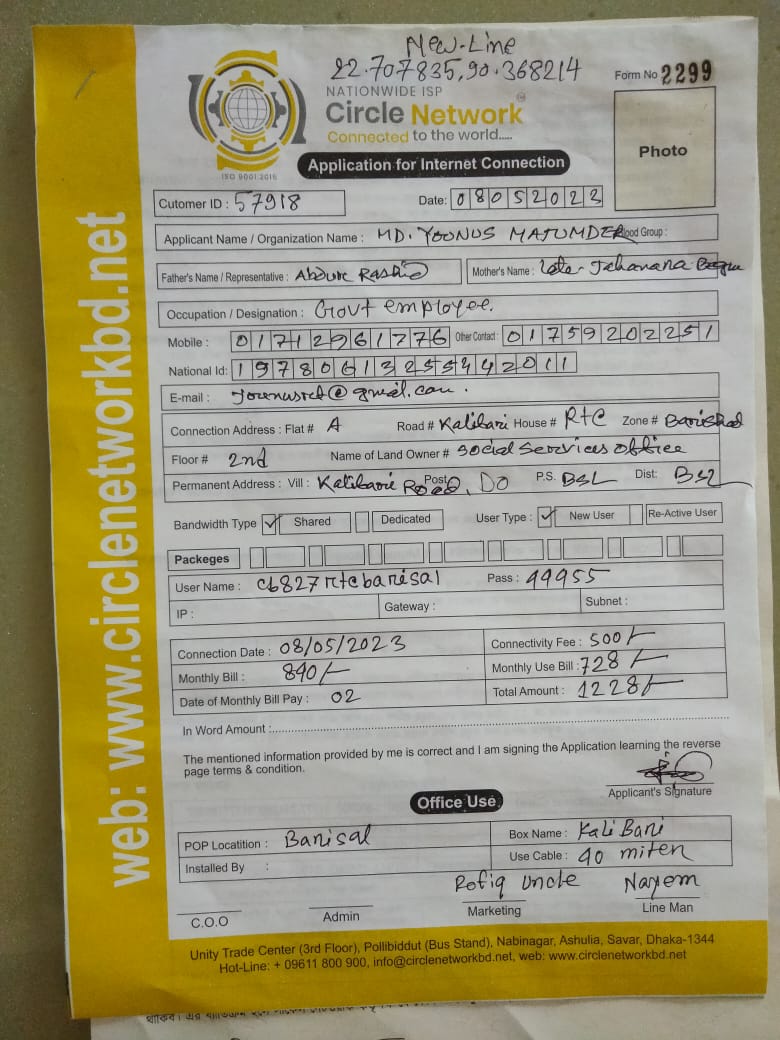 New-Line
22.707835,90.368214
Form No 2299
NATIONWIDE ISP
Circle Network
Connected to the world.....
ISO 9001:2016
Application for Internet Connection
Photo
Cutomer ID : 57918
Date: 08052023
Applicant Name / Organization Name : MD. YOONUS MAJUMDER Blood Group :
Father's Name / Representative : Abdur Rashid
Mother's Name : Late Jehanara Begum
Occupation / Designation : Govt employee.
Mobile : 01712961776 Other Contact : 01759202251
National Id:
E-mail : @gmail.com.
Connection Address : Flat # A Road # Kalibari House # RTC Zone # Barishal
Floor # 2nd Name of Land Owner # Social Services office
Permanent Address : Vill : Kalibari Road, Post DO P.S. BSL Dist: BSL
Bandwidth Type ✓ Shared Dedicated User Type : ✓ New User Re-Active User
Packeges
User Name : cb827rtcbarisal Pass : 99955
IP : Gateway : Subnet :
Connection Date : 08/05/2023 Connectivity Fee : 500/-
Monthly Bill : 890/- Monthly Use Bill : 728/-
Date of Monthly Bill Pay : 02 Total Amount : 1228/-
In Word Amount :
The mentioned information provided by me is correct and I am signing the Application learning the reverse
page terms & condition.
Applicant's Signature
Office Use
POP Locatition : Barisal Box Name : Kali Bari
Installed By : Use Cable : 90 miter
Rofiq Uncle Nayem
C.O.O Admin Marketing Line Man
Unity Trade Center (3rd Floor), Pollibiddut (Bus Stand), Nabinagar, Ashulia, Savar, Dhaka-1344
Hot-Line: + 09611 800 900, info@circlenetworkbd.net, web: www.circlenetworkbd.net
web: www.circlenetworkbd.net